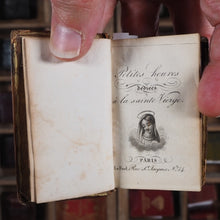 Petites heures
dédiées
à la sainte Vierge.
PARIS
Rue St. Jacques, No. 54